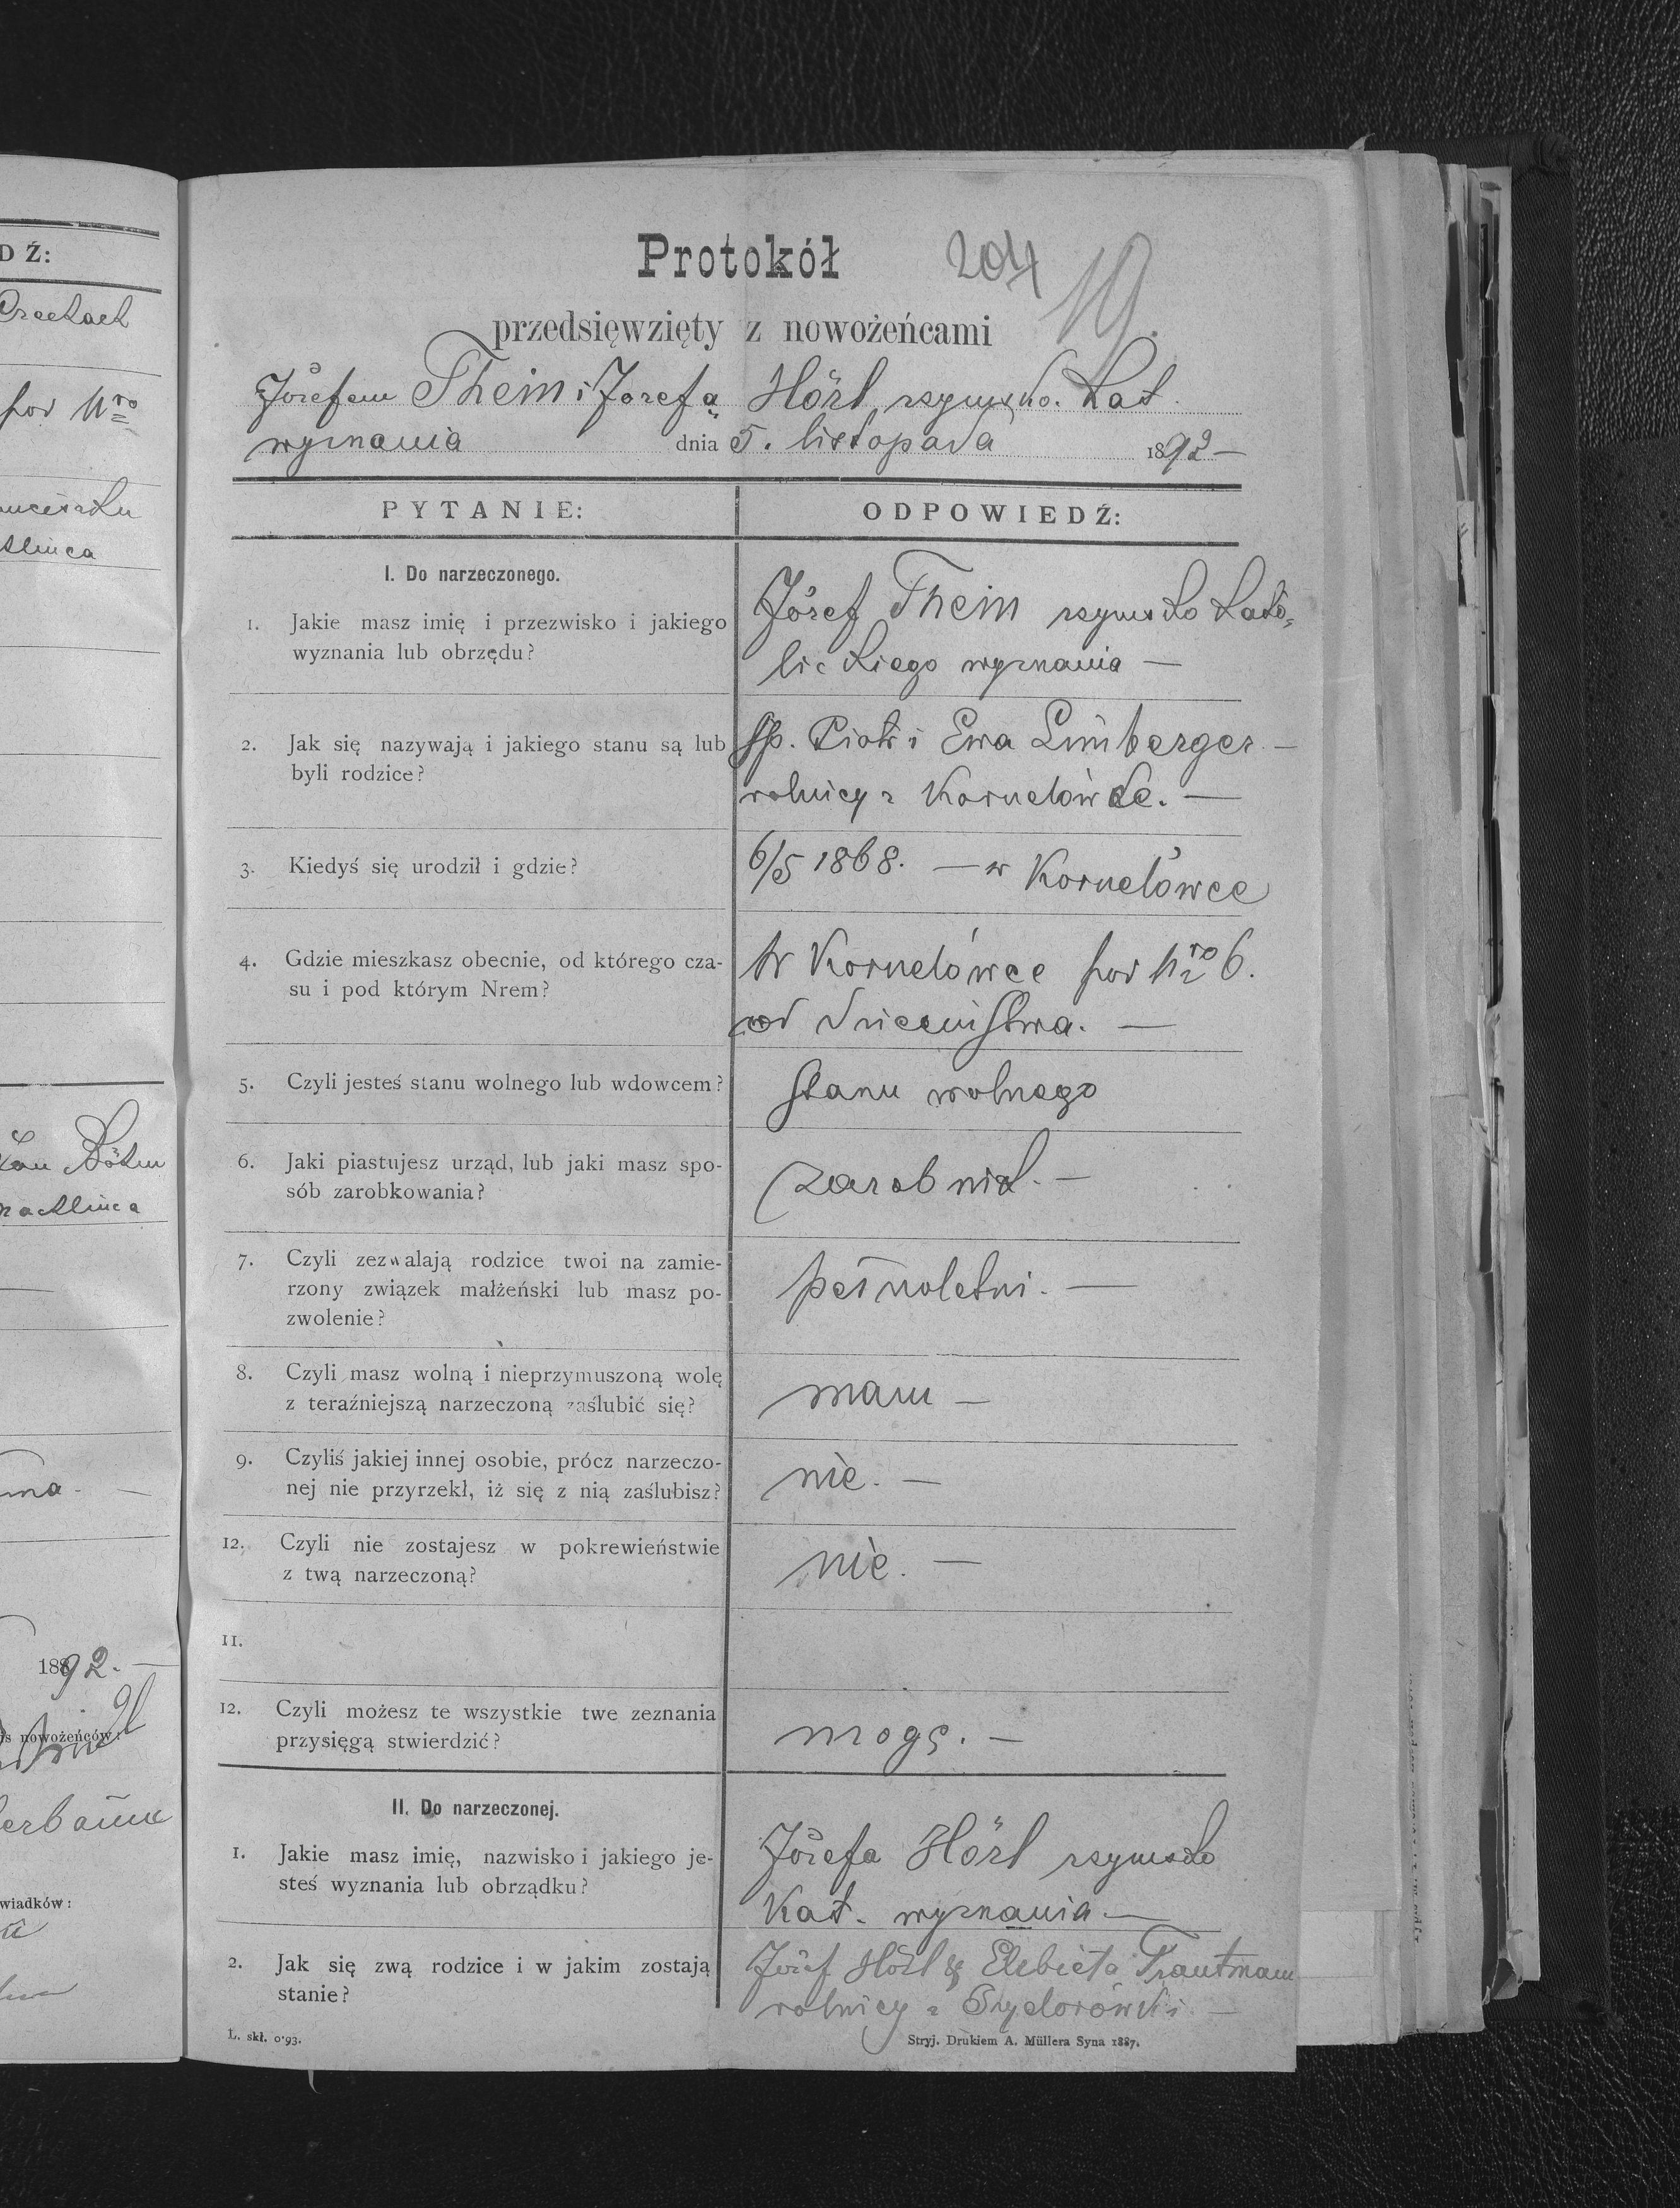 DŹ:
pod Nro
1892. —
nowożeńców:
wiadków:
Protokół 204
19.
przedsięwzięty z nowożeńcami
Józefem Thein i Józefą Hörl rzymsko. kat.
wyznania dnia 5. listopada 1892 —
PYTANIE: ODPOWIEDŹ:
I. Do narzeczonego.
1. Jakie masz imię i przezwisko i jakiego
wyznania lub obrzędu?
Józef Thein rzymsko kato-
lickiego wyznania —
2. Jak się nazywają i jakiego stanu są lub
byli rodzice?
śp. Piotr i Ewa Limberger —
rolnicy z Kornelówke. —
3. Kiedyś się urodził i gdzie?
6/5 1868. — w Kornelówce
4. Gdzie mieszkasz obecnie, od którego cza-
su i pod którym Nrem?
W Kornelówce pod Nro 6.
od dzieciństwa. —
5. Czyli jesteś stanu wolnego lub wdowcem?
Stanu wolnego
6. Jaki piastujesz urząd, lub jaki masz spo-
sób zarobkowania?
zarobnik. —
7. Czyli zezwalają rodzice twoi na zamie-
rzony związek małżeński lub masz po-
zwolenie?
pełnoletni. —
8. Czyli masz wolną i nieprzymuszoną wolę
z teraźniejszą narzeczoną zaślubić się?
mam —
9. Czyliś jakiej innej osobie, prócz narzeczo-
nej nie przyrzekł, iż się z nią zaślubisz?
nie. —
12. Czyli nie zostajesz w pokrewieństwie
z twą narzeczoną?
nie. —
11.
12. Czyli możesz te wszystkie twe zeznania
przysięgą stwierdzić?
mogę. —
II. Do narzeczonej.
1. Jakie masz imię, nazwisko i jakiego je-
steś wyznania lub obrządku?
Józefa Hörl rzymsko
Kat. wyznania —
2. Jak się zwą rodzice i w jakim zostają
stanie?
Józef Hörl & Elżbieta Trautman
rolnicy z Sydorówki —
L. skł. 0'93. Stryj. Drukiem A. Müllera Syna 1887.